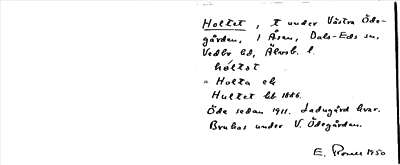 Holtet, t under Västra Öde-
gården, 1 Åsen, Dals-Eds sn,
Vedbo hd, Älvsb. l.
hóltət
= Holta ek
Hultet hb 1886.
Öde sedan 1911. Ladugård kvar.
Brukas under V. Ödegården.
E. 1950